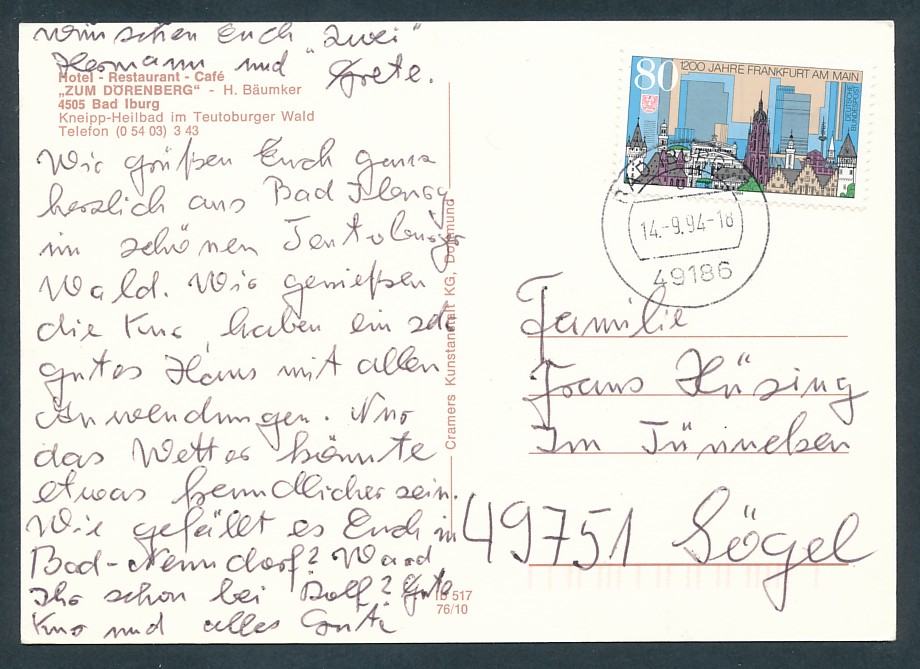 wünschen Euch "zwei"
Hermann und Grete.
Hotel - Restaurant - Café
„ZUM DÖRENBERG“ - H. Bäumker
4505 Bad Iburg
Kneipp-Heilbad im Teutoburger Wald
Telefon (0 54 03) 3 43
Wir grüßen Euch ganz
herzlich aus Bad Iburg
im schönen Teutoburger
Wald. Wir genießen
die Kur, haben ein sehr
gutes Haus mit allen
Anwendungen. Nur
das Wetter könnte
etwas freundlicher sein.
Wie gefällt es Euch in
Bad-Nenndorf? Ward
Ihr schon bei Rolf? Gute
Kur und alles Gute
Cramers Kunstanstalt KG, Dortmund
Ib 517
76/10
80 1200 JAHRE FRANKFURT AM MAIN
DEUTSCHE
BUNDESPOST
BAD IBURG
14.-9.94-18
49186
Familie
Franz Hüsing
Im Tünneken
49751 Sögel